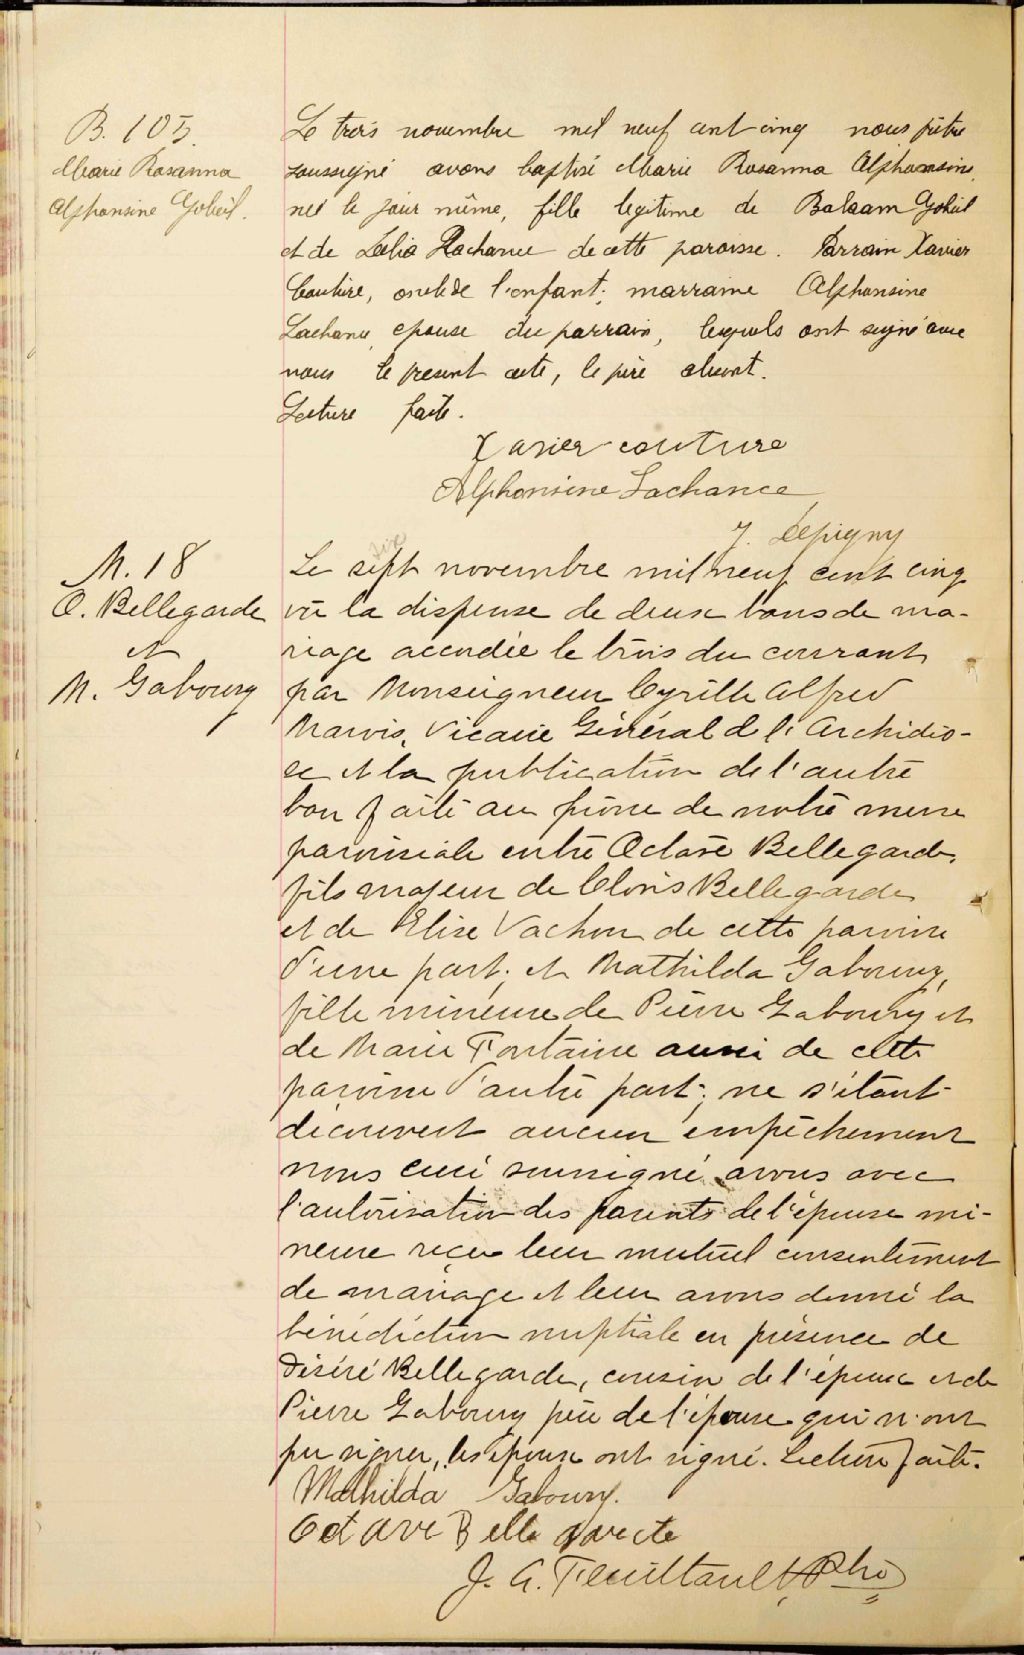 B. 105.
Marie Rosanna
Alphonsine Gobeil.
Le trois novembre mil neuf cent cinq nous prêtre
soussigné avons baptisé Marie Rosanna Alphonsine,
née le jour même, fille légitime de Balaam Gobeil
et de Lelia Lachance de cette paroisse. Parrain Xavier
Couture, oncle de l'enfant; marraine Alphonsine
Lachance, épouse du parrain, lesquels ont signé avec
nous le présent acte, le père absent.
Lecture faite.
Xavier couture
Alphonsine Lachance
J. Lepigny
M. 18
O. Bellegarde
et
M. Gaboury
Le sept novembre mil neuf cent cinq
vu la dispense de deux bans de ma-
riage accordée le trois du courant
par Monseigneur Cyrille Alfred
Marois, Vicaire Général de l'Archidio-
se et la publication de l'autre
ban faite au prône de notre messe
paroissiale entre Octave Bellegarde,
fils majeur de Clovis Bellegarde
et de Elise Vachon de cette paroisse
d'une part; et Mathilda Gaboury,
fille mineure de Pierre Gaboury et
de Marie Fontaine aussi de cette
paroisse d'autre part; ne s'étant
découvert aucun empêchement
nous curé soussigné avons avec
l'autorisation des parents de l'épouse mi-
neure reçu leur mutuel consentement
de mariage et leur avons donné la
bénédiction nuptiale en présence de
Désiré Bellegarde, cousin de l'époux et de
Pierre Gaboury père de l'épouse qui n'ont
pu signer, les époux ont signé. Lecture faite.
Mathilda Gaboury.
Octave Bellegarde
J. A. Feuiltault Ptre